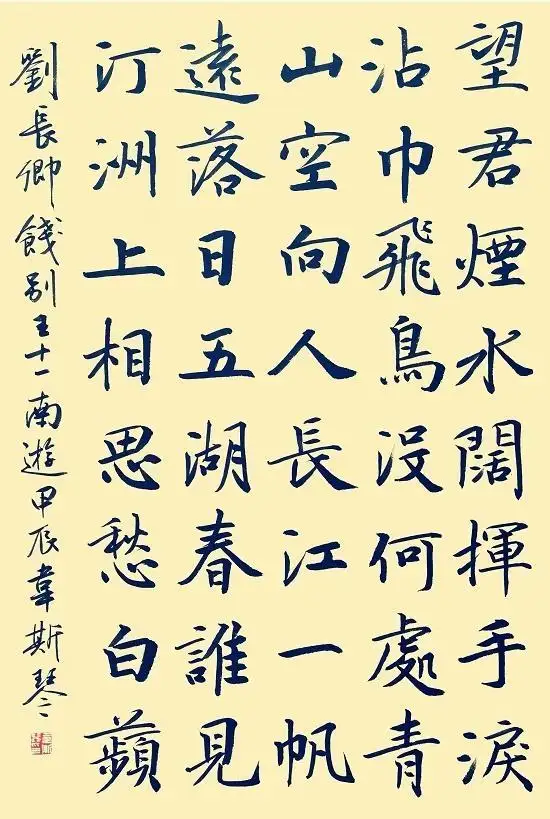 望君煙水闊揮手淚
沾巾飛鳥没何處青
山空向人長江一帆
遠落日五湖春誰見
汀洲上相思愁白蘋
劉長卿餞别王十一南遊甲辰韋斯琴